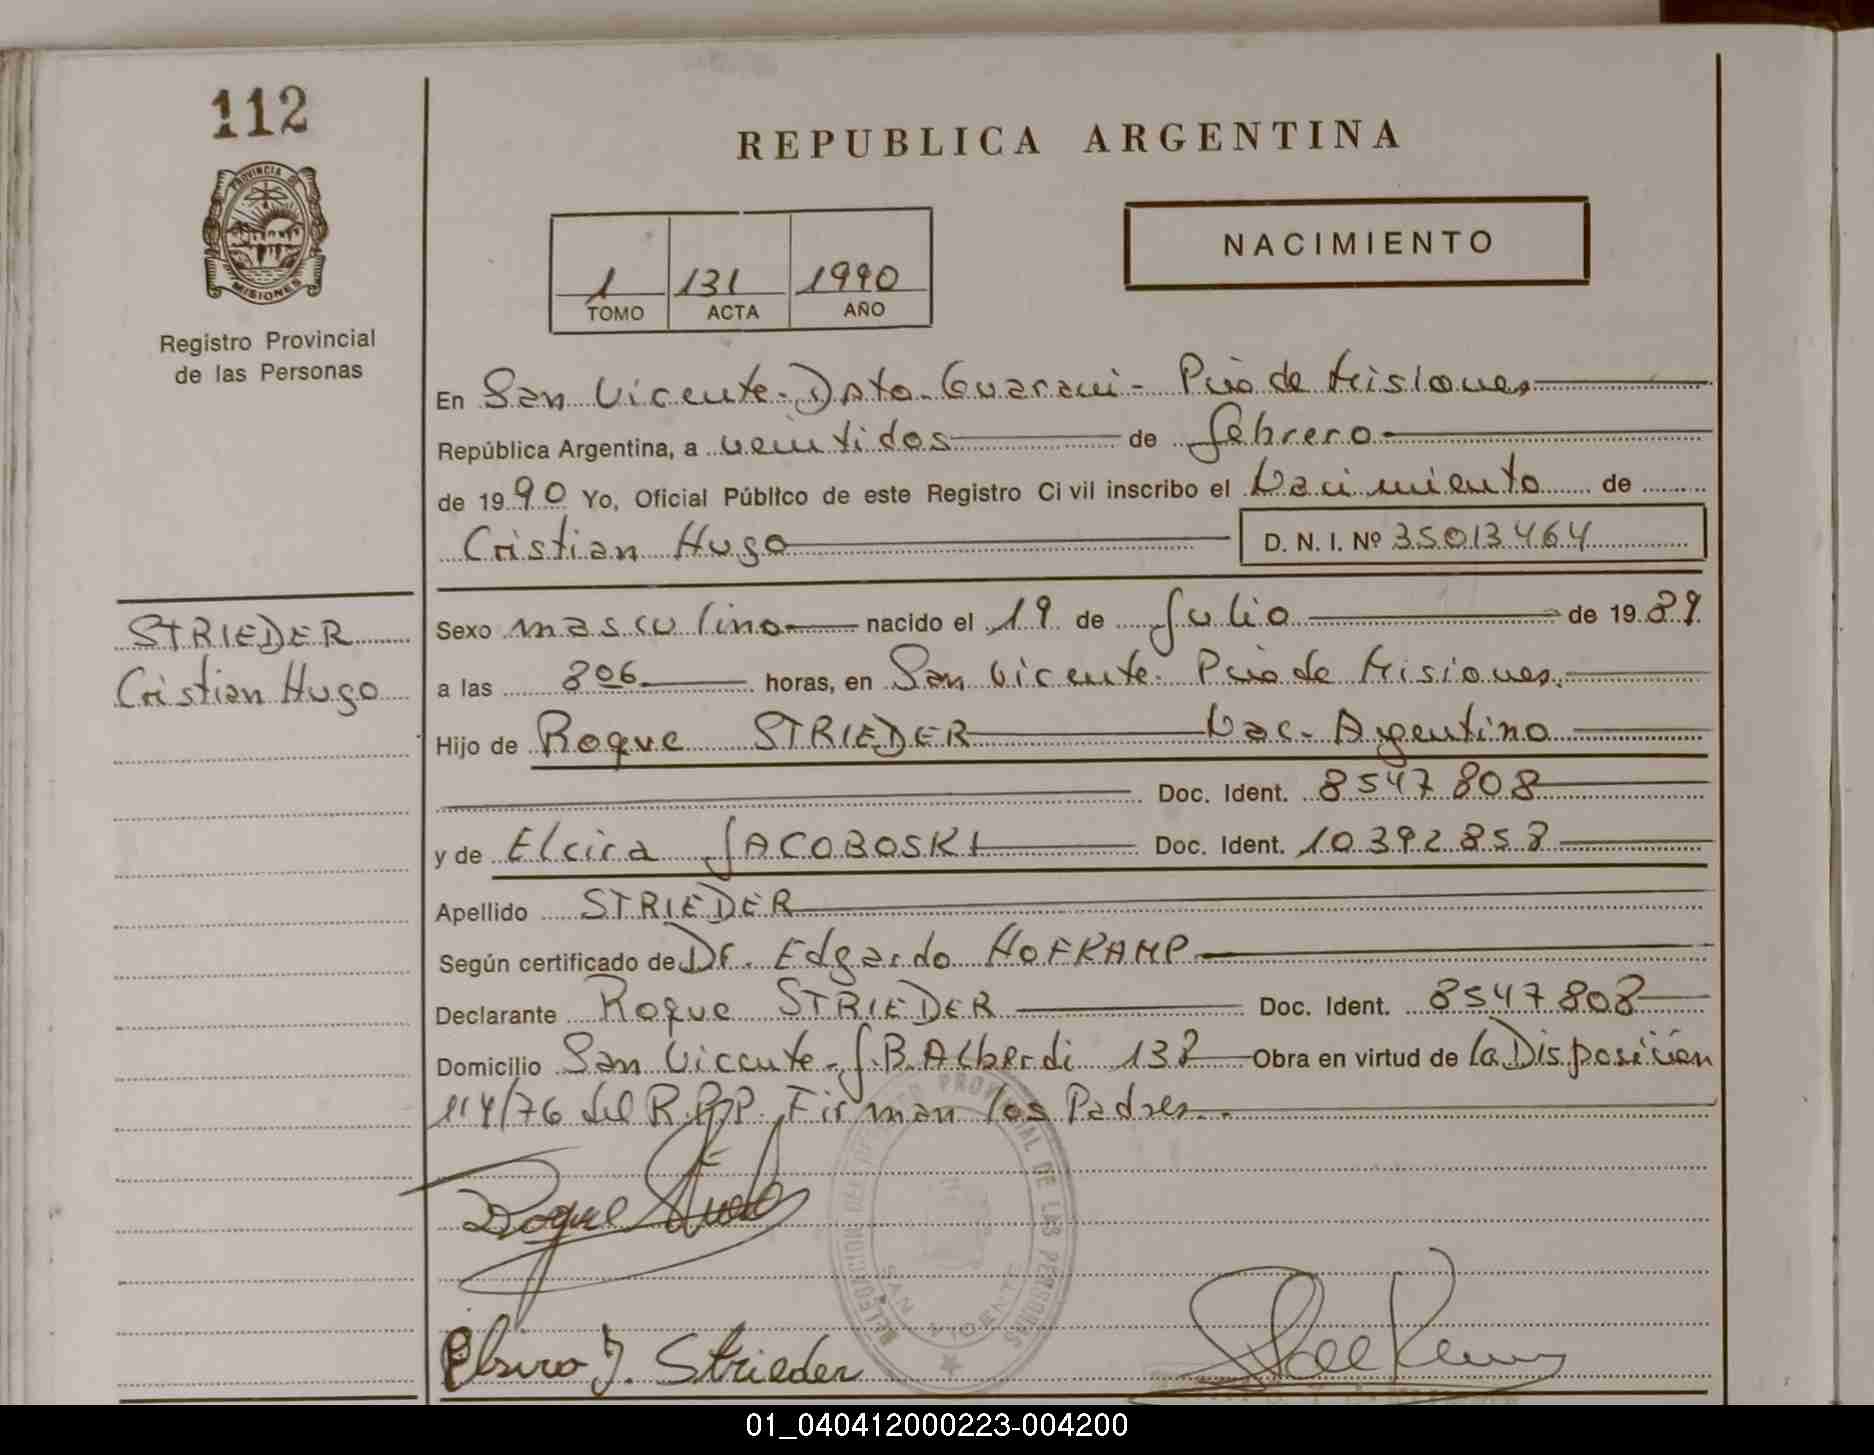 112
PROVINCIA DE
MISIONES
Registro Provincial
de las Personas
REPUBLICA ARGENTINA
NACIMIENTO
1 131 1990
TOMO ACTA AÑO
En San Vicente - Dpto. Guarani - Pcia de Misiones
República Argentina, a veintidos de febrero
de 1990 Yo, Oficial Público de este Registro Civil inscribo el Nacimiento de
Cristian Hugo D. N. I. Nº 35013464
STRIEDER
Cristian Hugo
Sexo masculino nacido el 19 de Julio de 1989.
a las 806 horas, en San Vicente. Pcia de Misiones.
Hijo de Roque STRIEDER Nac. Argentino
Doc. Ident. 8547808
y de Elcira JACOBOSKI Doc. Ident. 10392858
Apellido STRIEDER
Según certificado de Dr. Edgardo HOFKAMP
Declarante Roque STRIEDER Doc. Ident. 8547808
Domicilio San Vicente - J.B. Alberdi 138 Obra en virtud de la Disposición
114/76 del R.P.P. Firman los Padres.
DELEGACION DEL REGISTRO PROVINCIAL DE LAS PERSONAS
SAN VICENTE
Roque
J. Strieder
01_040412000223-004200